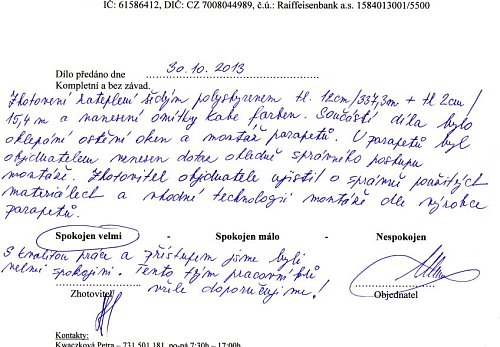 IČ: 61586412, DIČ: CZ 7008044989, č.ú.: Raiffeisenbank a.s. 1584013001/5500
Dílo předáno dne 30.10.2013
Kompletní a bez závad.
Zhotovení zateplení šedým polystyrenem tl. 12cm/337,3m + tl 2cm/
15,4 m a nanesení omítky Kabe farben. Součástí díla bylo
oklepání ostění oken a montáž parapetů. U parapetů byl
objednatelem vznesen dotaz ohledně správného postupu
montáže. Zhotovitel objednatele ujistil o správně použitých
materiálech a vhodné technologii montáže dle výrobce
parapetů.
Spokojen velmi - Spokojen málo - Nespokojen
S kvalitou práce a přístupem jsme byli
velmi spokojeni. Tento tým pracovníků
vřele doporučujeme!
Zhotovitel Objednatel
Kontakty:
Kwaczková Petra – 731 501 181, po-pá 7:30h – 17:00h